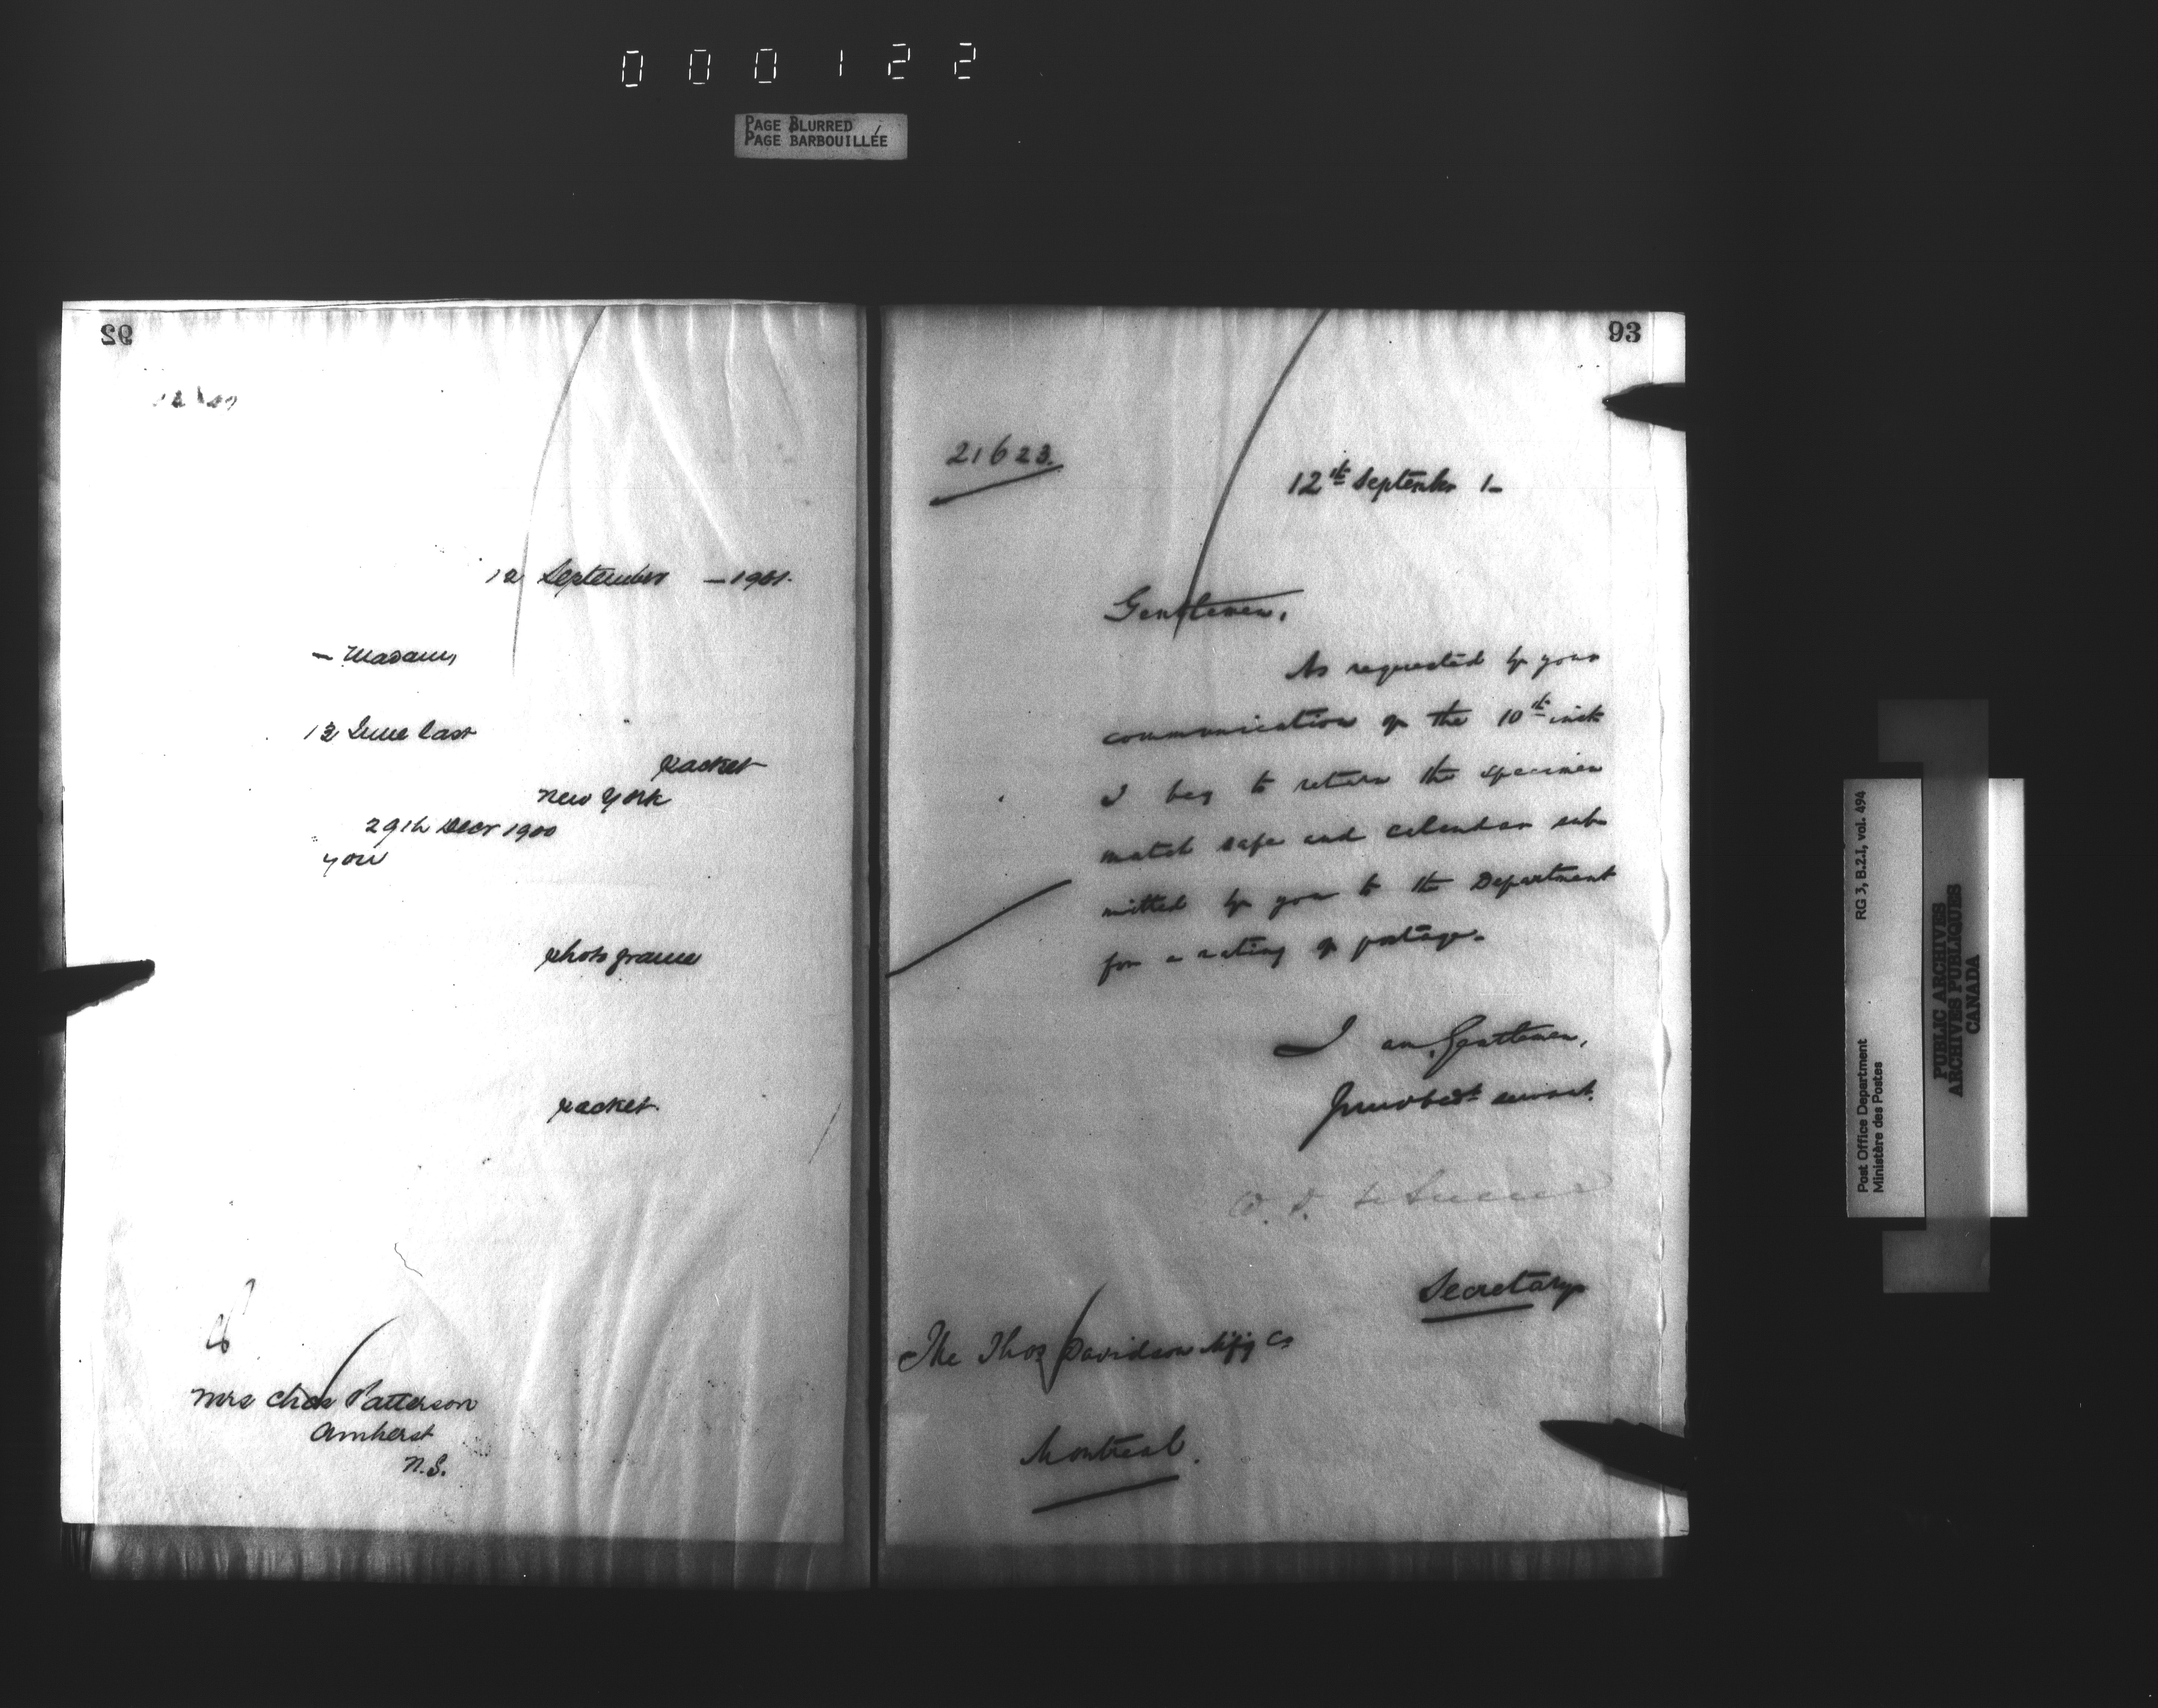 000122
PAGE BLURRED
PAGE BARBOUILLÉE
92
12 September - 1901.
- Madam,
13 June last
packet
New York
29th Decr 1900
you
photo frame
packet
Mrs Chas Patterson
Amherst
N.S.
93
21623.
12th September 1-
Gentlemen,
As requested by your
communication of the 10th inst
I beg to return the specimen
match safe and calendar sub-
mitted by you to the Department
for a rating of postage.
I am, Gentlemen,
Your obedt servant.
Secretary
The Thos Davidson Mfg Co
Montreal.
Post Office Department RG 3, B.2.1, vol. 494
Ministère des Postes
PUBLIC ARCHIVES
ARCHIVES PUBLIQUES
CANADA